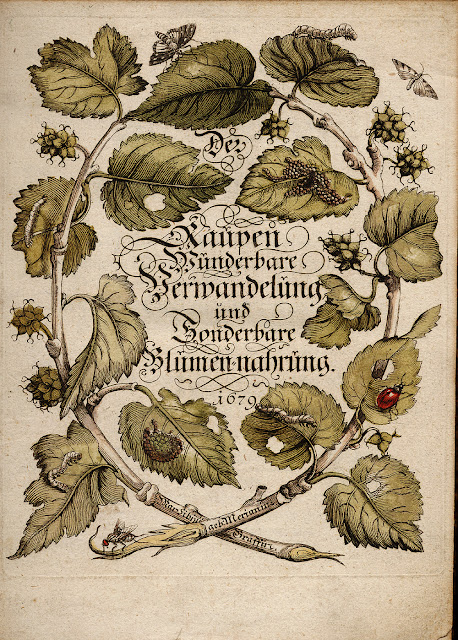 Der
Raupen
Wunderbare
Verwandelung
und
Sonderbare
Blumen-nahrung.
1679
Graffin